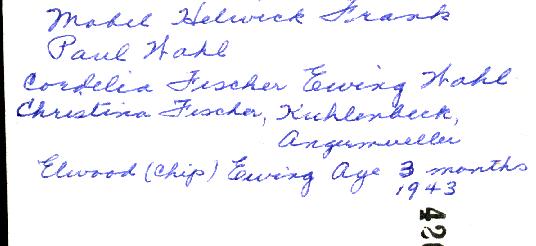 Mabel Helwick Frank
Paul Wahl
Cordelia Fischer Ewing Wahl
Christina Fischer, Kuhlenbeck,
Angermueller
Elwood (Chip) Ewing Age 3 months
1943
420